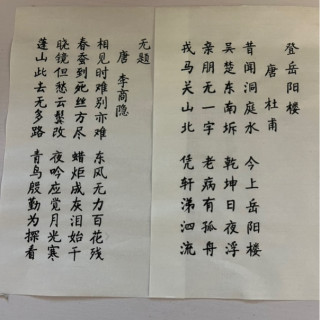 登岳阳楼
唐 杜甫
昔闻洞庭水 今上岳阳楼
吴楚东南坼 乾坤日夜浮
亲朋无一字 老病有孤舟
戎马关山北 凭轩涕泗流
无题
唐 李商隐
相见时难别亦难 东风无力百花残
春蚕到死丝方尽 蜡炬成灰泪始干
晓镜但愁云鬓改 夜吟应觉月光寒
蓬山此去无多路 青鸟殷勤为探看